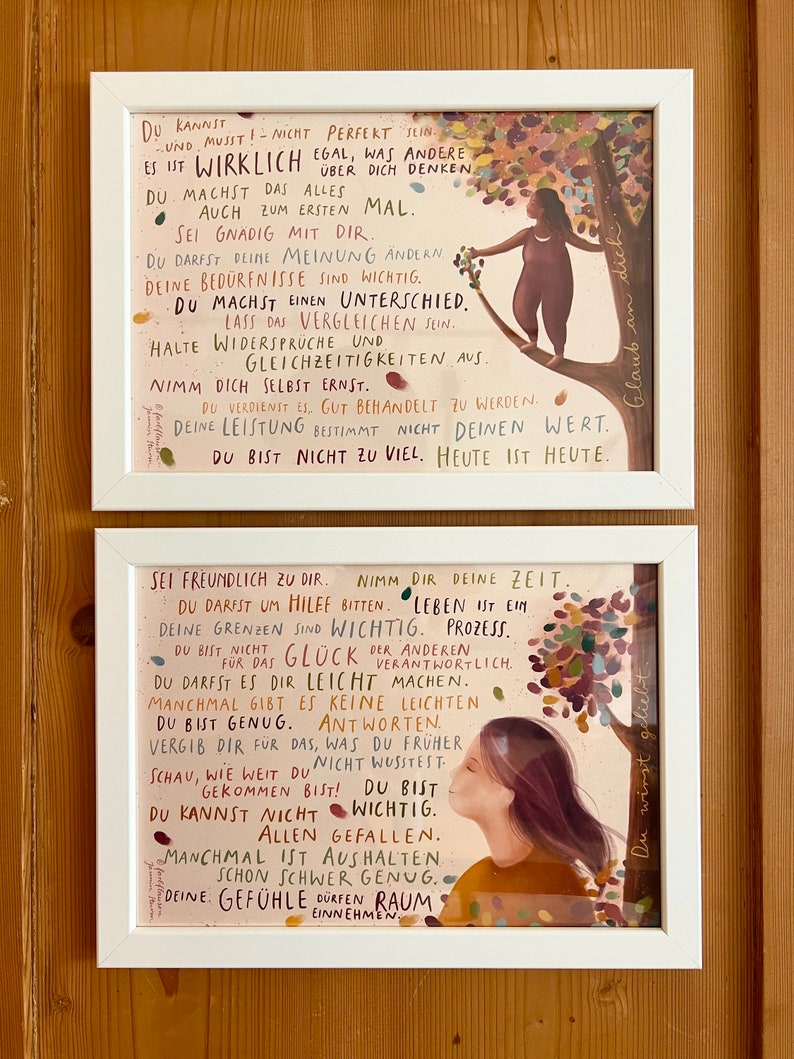 DU KANNST
UND MUSST! - NICHT PERFEKT SEIN.
ES IST WIRKLICH EGAL, WAS ANDERE
ÜBER DICH DENKEN.
DU MACHST DAS ALLES
AUCH ZUM ERSTEN MAL.
SEI GNÄDIG MIT DIR.
DU DARFST DEINE MEINUNG ÄNDERN.
DEINE BEDÜRFNISSE SIND WICHTIG.
DU MACHST EINEN UNTERSCHIED.
LASS DAS VERGLEICHEN SEIN.
HALTE WIDERSPRÜCHE UND
GLEICHZEITIGKEITEN AUS.
NIMM DICH SELBST ERNST.
DU VERDIENST ES, GUT BEHANDELT ZU WERDEN.
DEINE LEISTUNG BESTIMMT NICHT DEINEN WERT.
DU BIST NICHT ZU VIEL. HEUTE IST HEUTE.
Glaub an dich
@farbflausen
Jasmin Sturm
SEI FREUNDLICH ZU DIR. NIMM DIR DEINE ZEIT.
DU DARFST UM HILFE BITTEN. LEBEN IST EIN
DEINE GRENZEN SIND WICHTIG. PROZESS.
DU BIST NICHT
FÜR DAS GLÜCK DER ANDEREN
VERANTWORTLICH.
DU DARFST ES DIR LEICHT MACHEN.
MANCHMAL GIBT ES KEINE LEICHTEN
DU BIST GENUG. ANTWORTEN.
VERGIB DIR FÜR DAS, WAS DU FRÜHER
NICHT WUSSTEST.
SCHAU, WIE WEIT DU
GEKOMMEN BIST! DU BIST
WICHTIG.
DU KANNST NICHT
ALLEN GEFALLEN.
MANCHMAL IST AUSHALTEN
SCHON SCHWER GENUG.
DEINE GEFÜHLE DÜRFEN RAUM
EINNEHMEN.
Du wirst geliebt.
@farbflausen
Jasmin Sturm